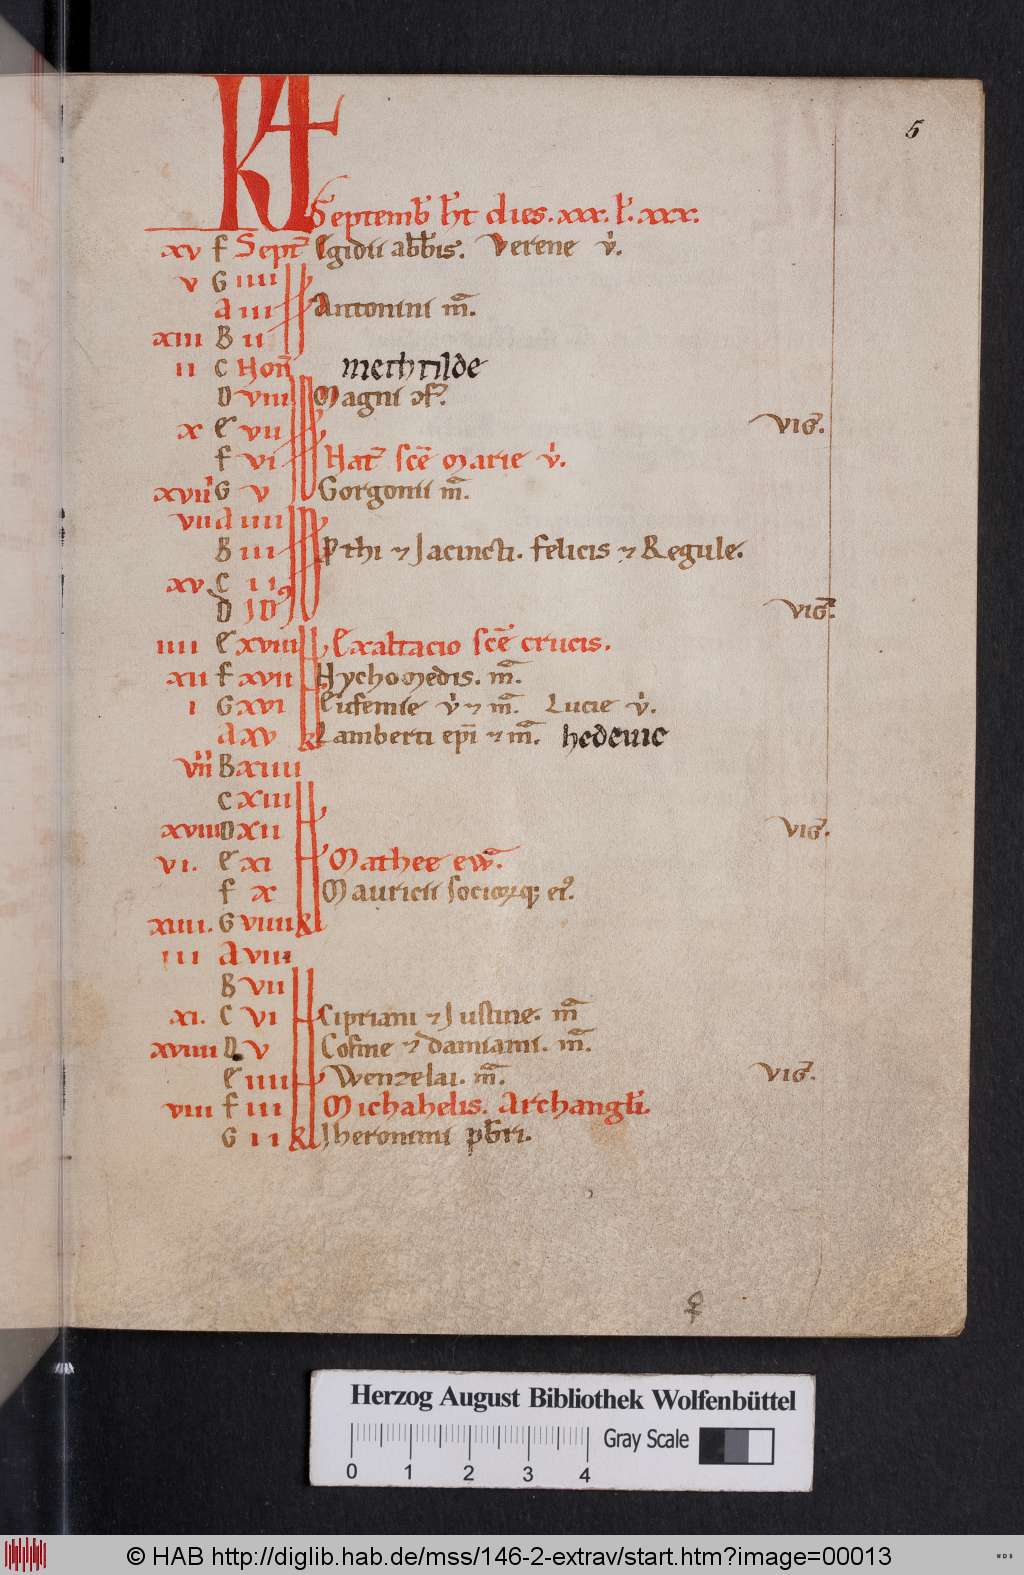 5
KL
Septemb̅ h̅t dies. xxx. l'. xxx.
xv F Sept̅ Egidii abb̅is. Verene v̉.
v G iiii
A iii Antonini m̅.
xiii B ii
ii C Non̅ Mechtilde
D viii Magni ɔf̉.
x E vii vig̅.
F vi Nat̅ sc̅e Marie v̉.
xviii G v Gorgonii m̅.
vii A iiii
B iii p̱thi ⁊ Jacincti. felicis ⁊ Regule.
xv C ii
D ID᷒ vig̅.
iiii E xviii Exaltacio sc̅e crucis.
xii F xvii Nychomedis. m̅.
i G xvi Eufemie v̉ ⁊ m̅. Lucie v̉.
A xv kl Lamberti ep̅i ⁊ m̅. hedewic
B xiiii
C xiii
xviii D xii vig̅.
vi. E xi Mathee ew̅.
F x Mauricii socioꝝq; ei᷒.
xiiii. G viiii kl
iii A viii
B vii
xi. C vi Cipriani ⁊ Justine. m̅
xviiii D v Cosme ⁊ damiani. m̅.
E iiii Wenzelai. m̅. vig̅.
viii F iii Michahelis. Archangl̉i.
G ii kl Jheronimi p̅b̅ri.
Herzog August Bibliothek Wolfenbüttel
Gray Scale
0 1 2 3 4
© HAB http://diglib.hab.de/mss/146-2-extrav/start.htm?image=00013